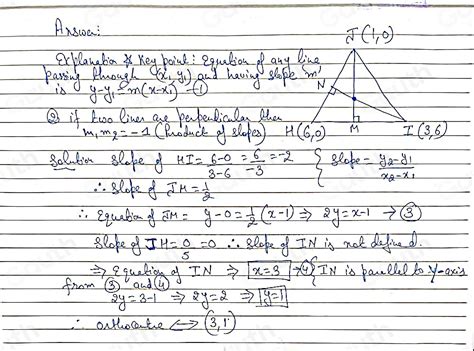 Answer:
J(1,0)
Explanation & Key point: Equation of any line
passing through (x₁, y₁) and having slope 'm'
is y-y₁ = m(x-x₁) -(1)
N
② if two lines are perpendicular then
m₁m₂ = -1 (Product of slopes)
H(6,0) M I(3,6)
Solution slope of HI = 6-0/3-6 = 6/-3 = -2 { slope = y₂-y₁/x₂-x₁
∴ slope of JM = 1/2
∴ Equation of JM = y-0 = 1/2(x-1) ⇒ 2y = x-1 → ③
Slope of JH = 0/5 = 0 ∴ slope of IN is not defined.
⇒ Equation of IN ⇒ x=3 →④ { IN is parallel to y-axis
from ③ and ④
2y = 3-1 ⇒ 2y = 2 ⇒ y=1
∴ orthocentre ⟺ (3,1)